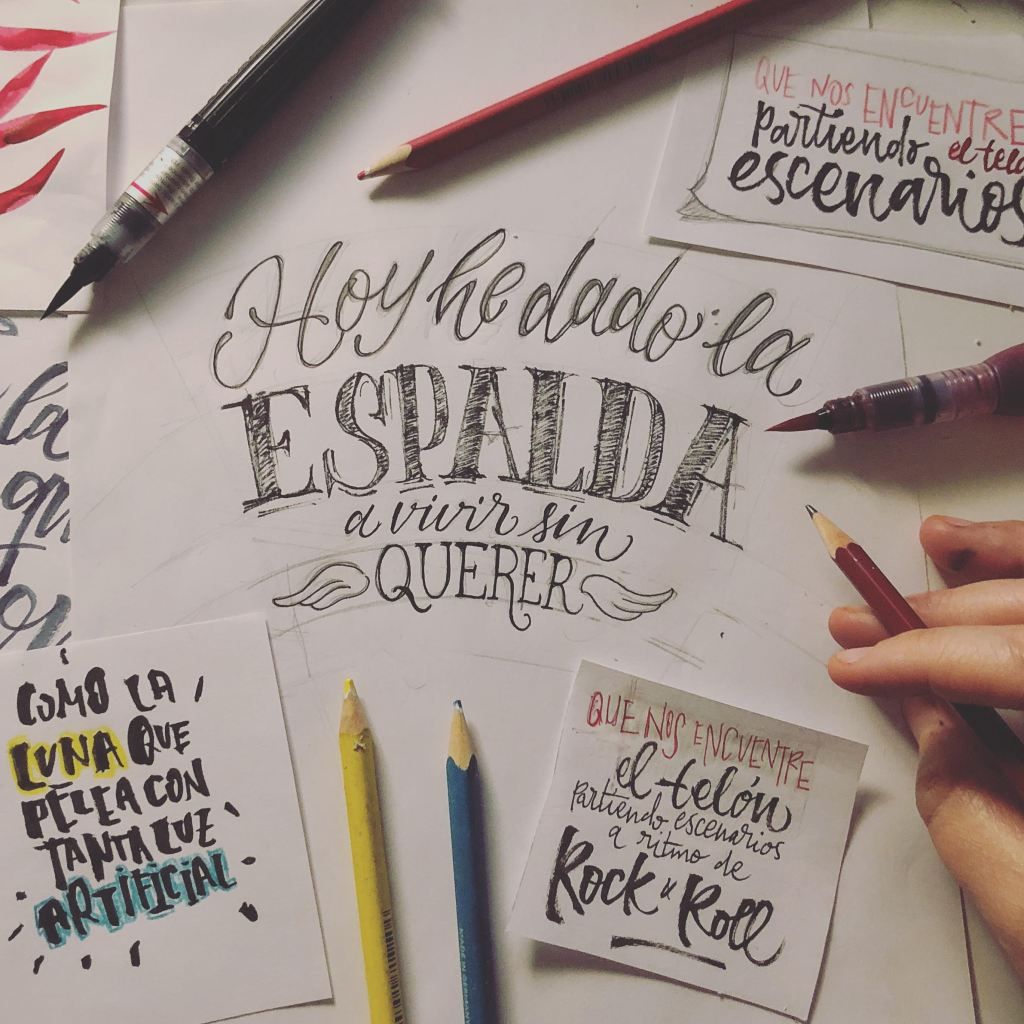 QUE NOS ENCUENTRE
Partiendo el teló
escenarios
Hoy he dado la
ESPALDA
a vivir sin
QUERER
la
COMO LA
LUNA QUE
PELEA CON
TANTA LUZ
ARTIFICIAL
QUE NOS ENCUENTRE
el telón
Partiendo escenarios
a ritmo de
Rock & Roll